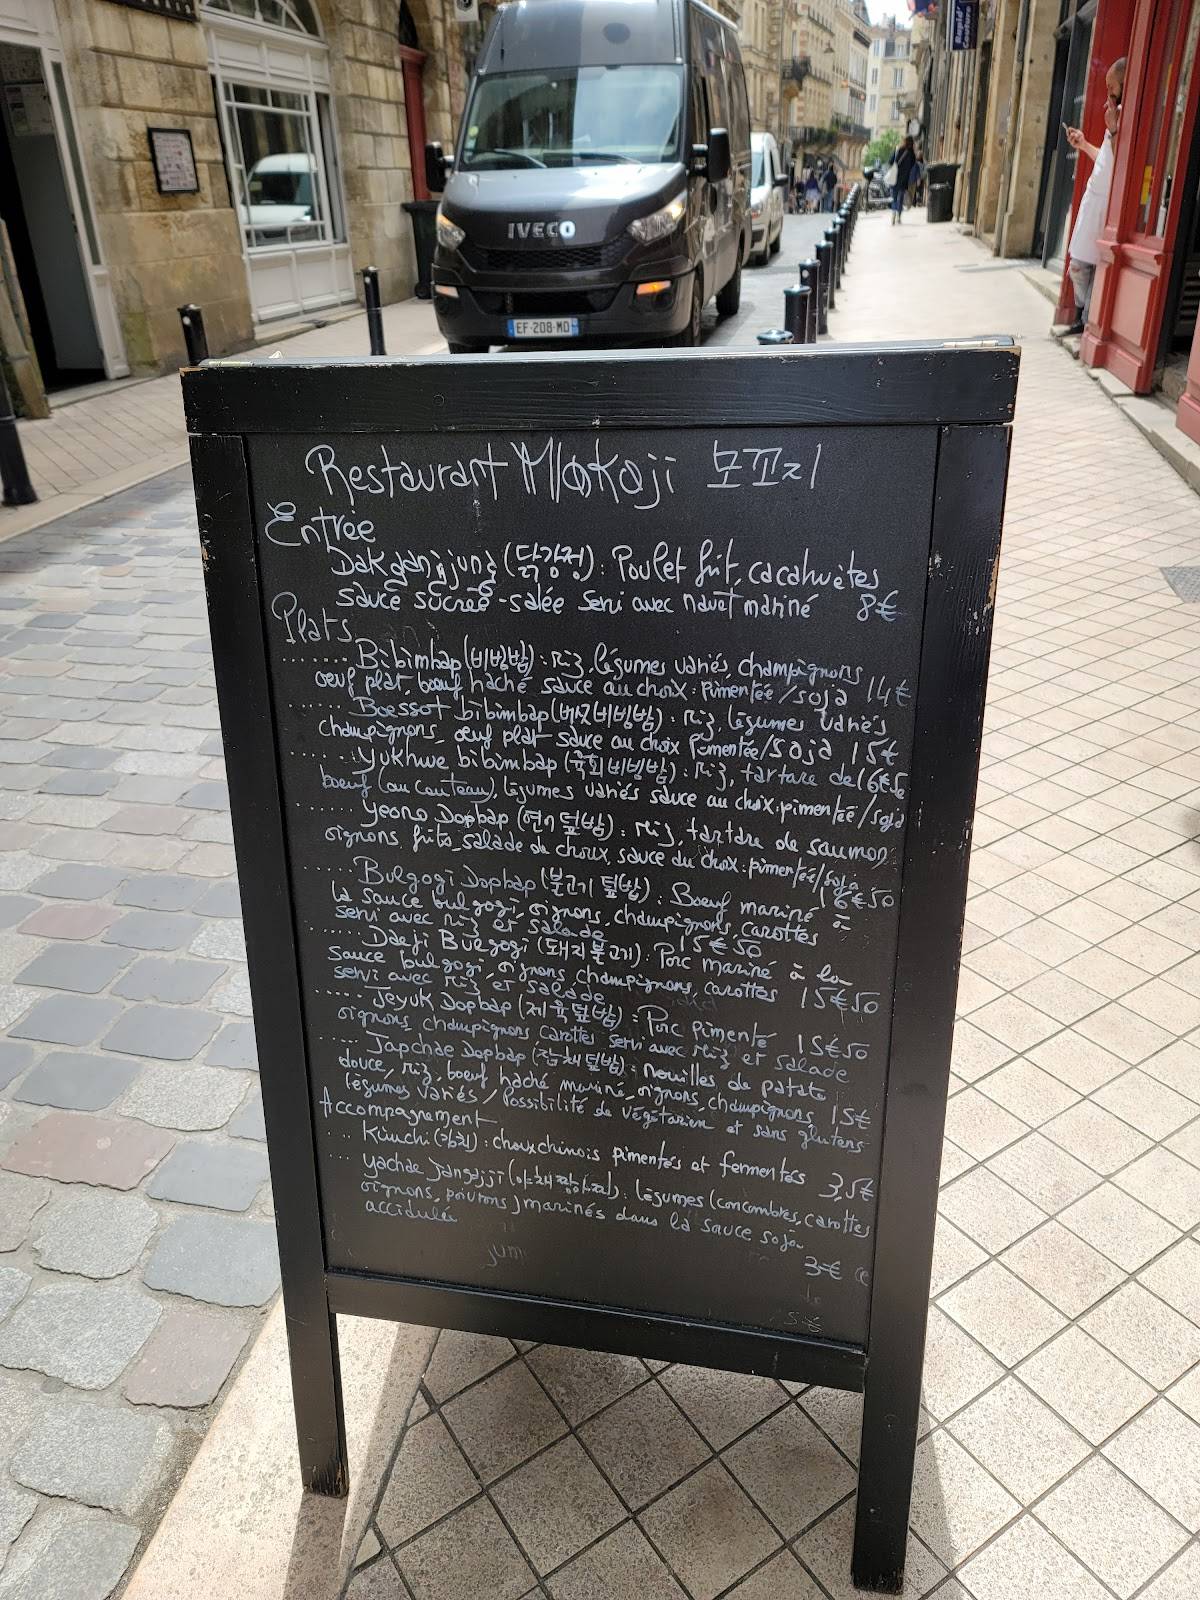 IVECO
EF-208-MD
Restaurant Mokoji 모꼬지
Entrée
Dakgangjung (닭강정) : Poulet frit, cacahuètes
sauce sucrée-salée servi avec navet mariné 8€
Plats
Bibimbap (비빔밥) : riz, légumes variés, champignons
oeuf plat, boeuf haché sauce au choix : pimentée/soja 14€
Boessot bibimbap (버섯비빔밥) : riz, légumes variés
champignons, oeuf plat sauce au choix pimentée/soja 15€
Yukhwe bibimbap (육회비빔밥) : riz, tartare de 16€50
boeuf (au couteau), légumes variés sauce au choix : pimentée/soja
Yeono Dopbap (연어덮밥) : riz, tartare de saumon
oignons frits, salade de choux, sauce au choix : pimentée/soja
16€50
Bulgogi Dopbap (불고기 덮밥) : Boeuf mariné à
la sauce bulgogi, oignons, champignons, carottes
servi avec riz et salade 15€50
Daeji Bulgogi (돼지불고기) : Porc mariné à la
sauce bulgogi, oignons, champignons, carottes
servi avec riz et salade 15€50
Jeyuk Dopbap (제육덮밥) : Porc pimenté 15€50
oignons, champignons carottes servi avec riz et salade
Japchae Dopbap (잡채덮밥) : nouilles de patate
douce, riz, boeuf haché mariné, oignons, champignons, 15€
légumes variés / Possibilité de végétarien et sans glutens
Accompagnement
Kimchi (김치) : choux chinois pimentés et fermentés 3,5€
Yachae Jangajji (야채장아찌) : légumes (concombres, carottes
oignons, poivrons) marinés dans la sauce soja
accidulée
3€